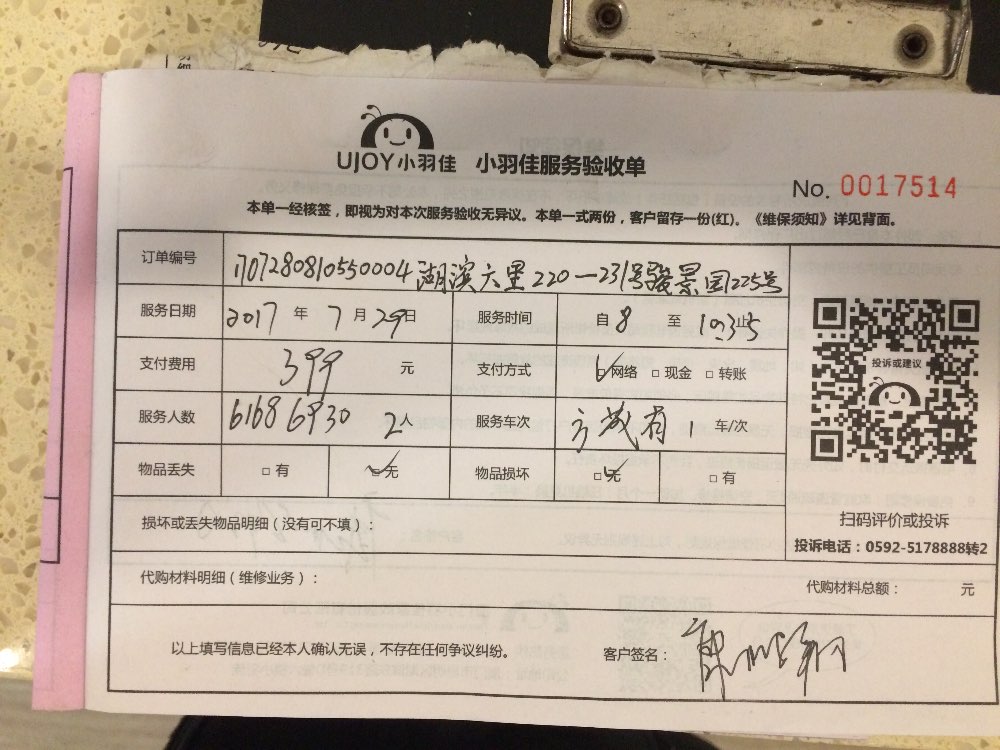 UJOY小羽佳 小羽佳服务验收单
No. 0017514
本单一经核签，即视为对本次服务验收无异议。本单一式两份，客户留存一份(红)。《维保须知》详见背面。
订单编号 1707280810550004 湖滨六里220一231号骏景园225号
服务日期 2017 年 7 月 29 日 服务时间 自 8 至 10:35 止
支付费用 399 元 支付方式 网络 □ 现金 □ 转账
服务人数 6168 6930 2人 服务车次 1 车/次
物品丢失 □ 有 ☑ 无 物品损坏 ☑ 无 □ 有
投诉或建议
扫码评价或投诉
投诉电话：0592-5178888转2
损坏或丢失物品明细（没有可不填）：
代购材料明细（维修业务）： 代购材料总额： 元
以上填写信息已经本人确认无误，不存在任何争议纠纷。 客户签名：